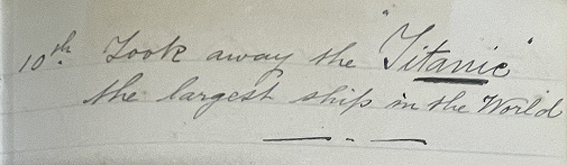 10th. Took away the "Titanic"
the largest ship in the World